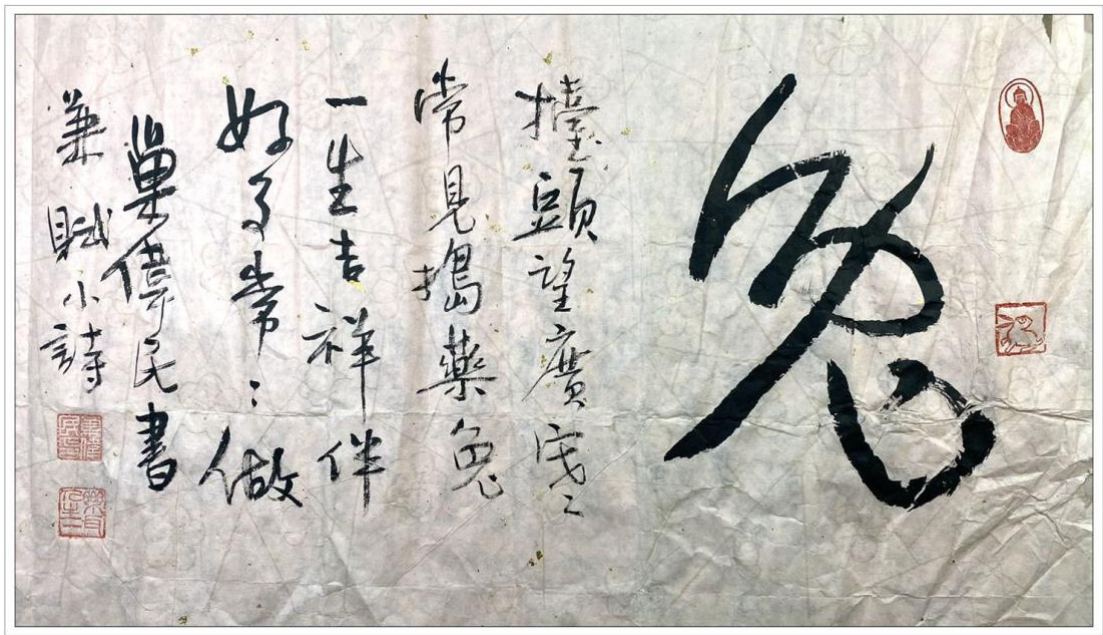 兔
擡頭望廣寒
常見搗藥兔
一生吉祥伴
好事常々做
巢偉民書
兼賦小詩